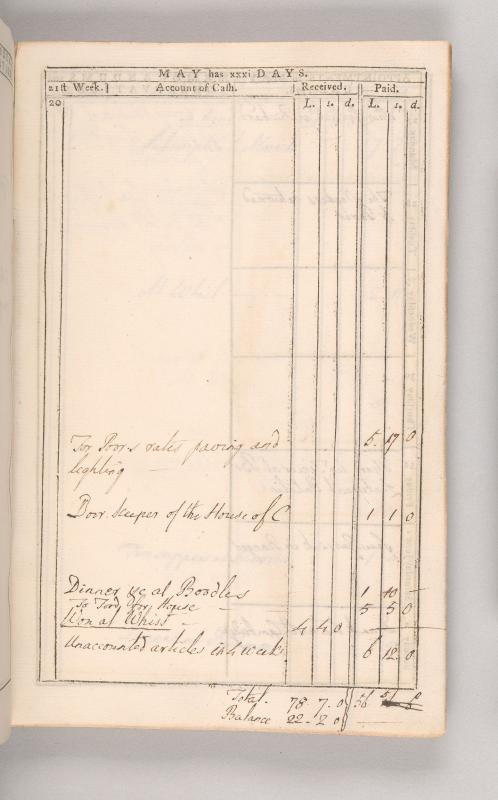 MAY has xxxi DAYS.
21st Week. Account of Cash. Received. Paid.
20 L. s. d. L. s. d.
For Poors rates paving and 5. 17 0
leghting —
Door keeper of the House of C 1 1 0
Dinner &c at Boodles 1 10 —
To Ford for House — 5 5 0
Won at Whist — 4 4 0
Unaccounted articles in 4 weeks 6 12. 0
Total. 78. 7. 0 56
Balance 22. 2 0